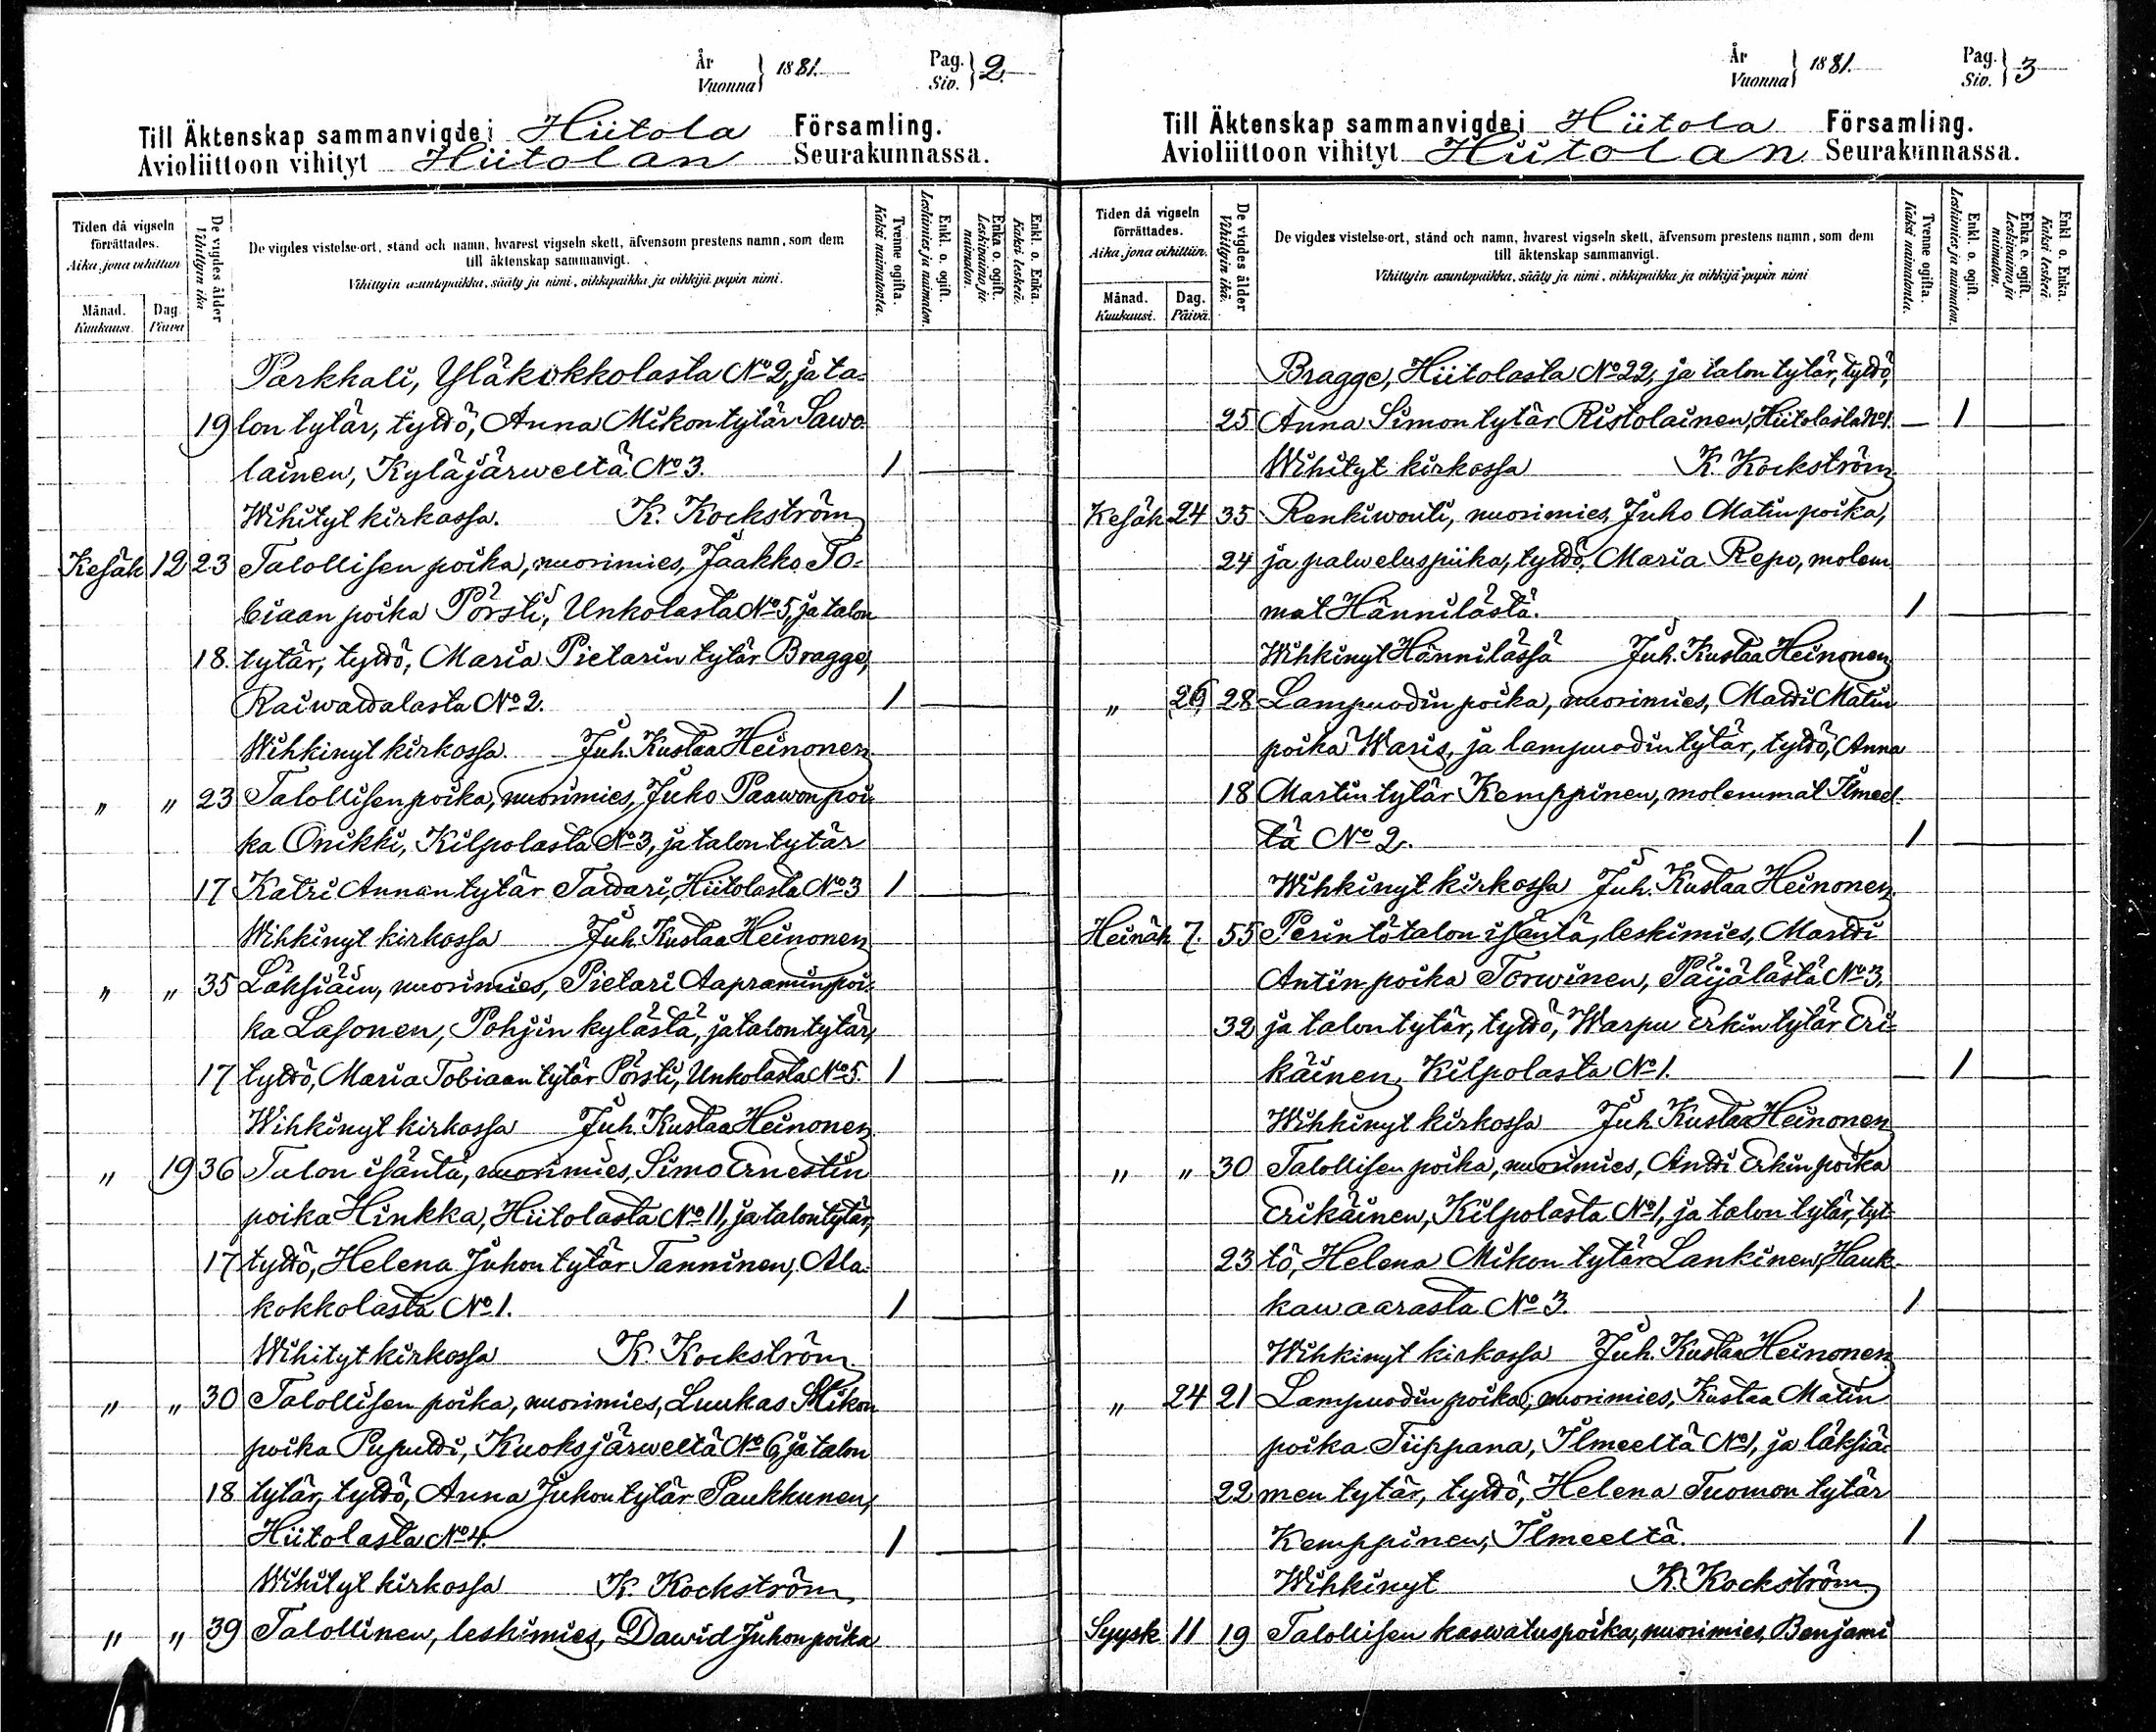 År
Vuonna } 1881.
Pag.
Siv. } 2.
Till Äktenskap sammanvigde i Hiitola Församling.
Avioliittoon vihityt Hiitolan Seurakunnassa.
Tiden då vigseln förrättades.
Aika, jona vihittiin
Månad.
Kuukausi.
Dag.
Päivä
De vigdes ålder
Vihittyin ikä
De vigdes vistelse-ort, stånd och namn, hvarest vigseln skett, äfvensom prestens namn, som dem
till äktenskap sammanvigt.
Vihittyin asuntopaikka, sääty ja nimi, vihkipaikka ja vihkijä papin nimi.
Tvenne ogifta.
Kaksi naimatonta.
Enkl. o. ogift.
Leskimies ja naimaton.
Enka o. ogift.
Leskivaimo ja naimaton.
Enkl. o. Enka.
Kaksi leskeä.
Parkkali, Yläkokkolasta No 2, ja ta-
19 lon tytär, tyttö, Anna Mikon tytär Sawo
lainen, Kyläjärweltä No 3. 1
Wihityt kirkossa. K. Kockström
Kesäk 12 23 Talollisen poika, nuorimies, Jaakko To-
biaan poika Pörsti, Unkolasta No 5, ja talon
18. tytär, tyttö, Maria Pietarin tytär Bragge,
Raiwattalasta No 2. 1
Wihkinyt kirkossa. Juh. Kustaa Heinonen
" " 23 Talollisen poika, nuorimies, Juho Paawon poi
ka Onikki, Kilpolasta No 3, ja talon tytär
17 Katri Annan tytär Tattari, Hiitolasta No 3 1
Wihkinyt kirkossa Juh. Kustaa Heinonen
" " 35 Läksiäin, nuorimies, Pietari Aapramin poi
ka Lasonen, Pohjin kylästä, ja talon tytär,
17 tyttö, Maria Tobiaan tytär Pörsti, Unkolasta No 5. 1
Wihkinyt kirkossa Juh. Kustaa Heinonen
" 19 36 Talon isäntä, nuorimies, Simo Ernestin
poika Hinkka, Hiitolasta No 11, ja talon tytär,
17 tyttö, Helena Juhon tytär Tanninen, Ala-
kokkolasta No 1. 1
Wihityt kirkossa K. Kockström
" " 30 Talollisen poika, nuorimies, Luukas Mikon
poika Puputti, Kuoksjärweltä No 6, ja talon
18 tytär, tyttö, Anna Juhon tytär Paukkunen,
Hiitolasta No 4. 1
Wihityt kirkossa K. Kockström
" " 39 Talollinen, leskimies, Dawid Juhon poika
År
Vuonna } 1881.
Pag.
Siv. } 3
Till Äktenskap sammanvigde i Hiitola Församling.
Avioliittoon vihityt Hiitolan Seurakunnassa.
Tiden då vigseln förrättades.
Aika, jona vihittiin.
Månad.
Kuukausi.
Dag.
Päivä.
De vigdes ålder
Vihittyin ikä.
De vigdes vistelse-ort, stånd och namn, hvarest vigseln skett, äfvensom prestens namn, som dem
till äktenskap sammanvigt.
Vihittyin asuntopaikka, sääty ja nimi, vihkipaikka ja vihkijä papin nimi
Tvenne ogifta.
Kaksi naimatonta.
Enkl. o. ogift.
Leskimies ja naimaton.
Enka o. ogift.
Leskivaimo ja naimaton.
Enkl. o. Enka.
Kaksi leskeä.
Bragge, Hiitolasta No 22, ja talon tytär, tyttö,
25 Anna Simon tytär Ristolainen, Hiitolasta No 1. 1
Wihityt kirkossa K. Kockström
Kesäk 24 35 Renkiwouti, nuorimies, Juho Matin poika,
24 ja palweluspiika, tyttö, Maria Repo, molem
mat Hännilästä. 1
Wihkinyt Hännilässä Juh. Kustaa Heinonen
" 26 28 Lampuodin poika, nuorimies, Matti Matin
poika Waris, ja lampuodin tytär, tyttö, Anna
18 Martin tytär Kemppinen, molemmat Ilmeel
tä No 2. 1
Wihkinyt kirkossa Juh. Kustaa Heinonen
Heinäk 7. 55 Perintötalon isäntä, leskimies, Martti
Antin poika Torwinen, Päijälästä No 3,
32 ja talon tytär, tyttö, Warpu Erkin tytär Eri-
käinen, Kilpolasta No 1. 1
Wihkinyt kirkossa Juh. Kustaa Heinonen
" " 30 Talollisen poika, nuorimies, Antti Erkin poika
Erikäinen, Kilpolasta No 1, ja talon tytär, tyt-
23 tö, Helena Mikon tytär Lankinen, Hauk-
kawaarasta No 3. 1
Wihkinyt kirkossa Juh. Kustaa Heinonen
" 24 21 Lampuodin poika, nuorimies, Kustaa Matin
poika Tiippana, Ilmeeltä No 1, ja läksiä-
22 men tytär, tyttö, Helena Tuomon tytär
Kemppinen, Ilmeeltä. 1
Wihkinyt K. Kockström
Syysk 11 19 Talollisen kaswatuspoika, nuorimies, Benjami